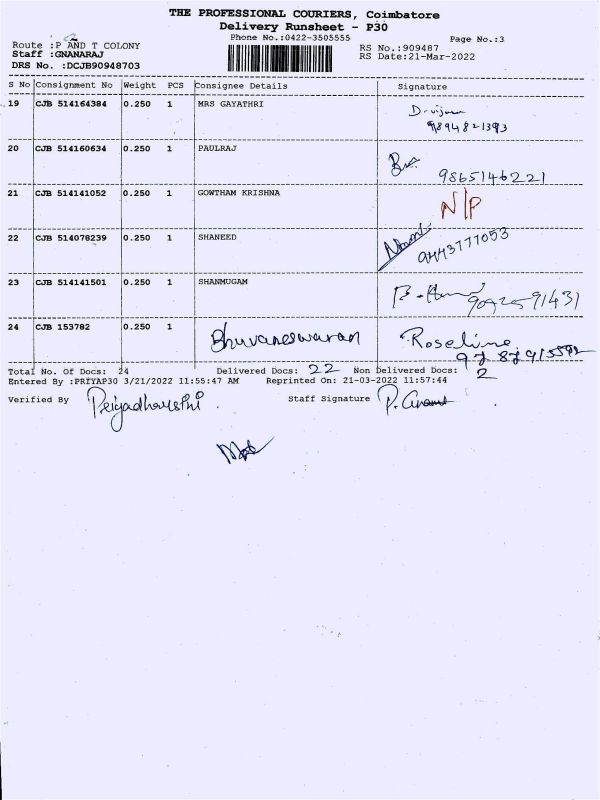 THE PROFESSIONAL COURIERS, Coimbatore
Delivery Runsheet - P30
Phone No.:0422-3505555
Page No.:3
Route :P AND T COLONY
RS No.:909487
Staff :GNANARAJ
RS Date:21-Mar-2022
DRS No. :DCJB90948703
S No Consignment No Weight PCS Consignee Details Signature
19 CJB 514164384 0.250 1 MRS GAYATHRI
9894821393
20 CJB 514160634 0.250 1 PAULRAJ
9865146221
21 CJB 514141052 0.250 1 GOWTHAM KRISHNA N/P
22 CJB 514078239 0.250 1 SHANEED
9443177053
23 CJB 514141501 0.250 1 SHANMUGAM
24 CJB 153782 0.250 1 Bhuvaneswaran Roseline
Total No. Of Docs: 24 Delivered Docs: 22 Non Delivered Docs: 2
Entered By :PRIYAP30 3/21/2022 11:55:47 AM Reprinted On: 21-03-2022 11:57:44
Verified By Staff Signature